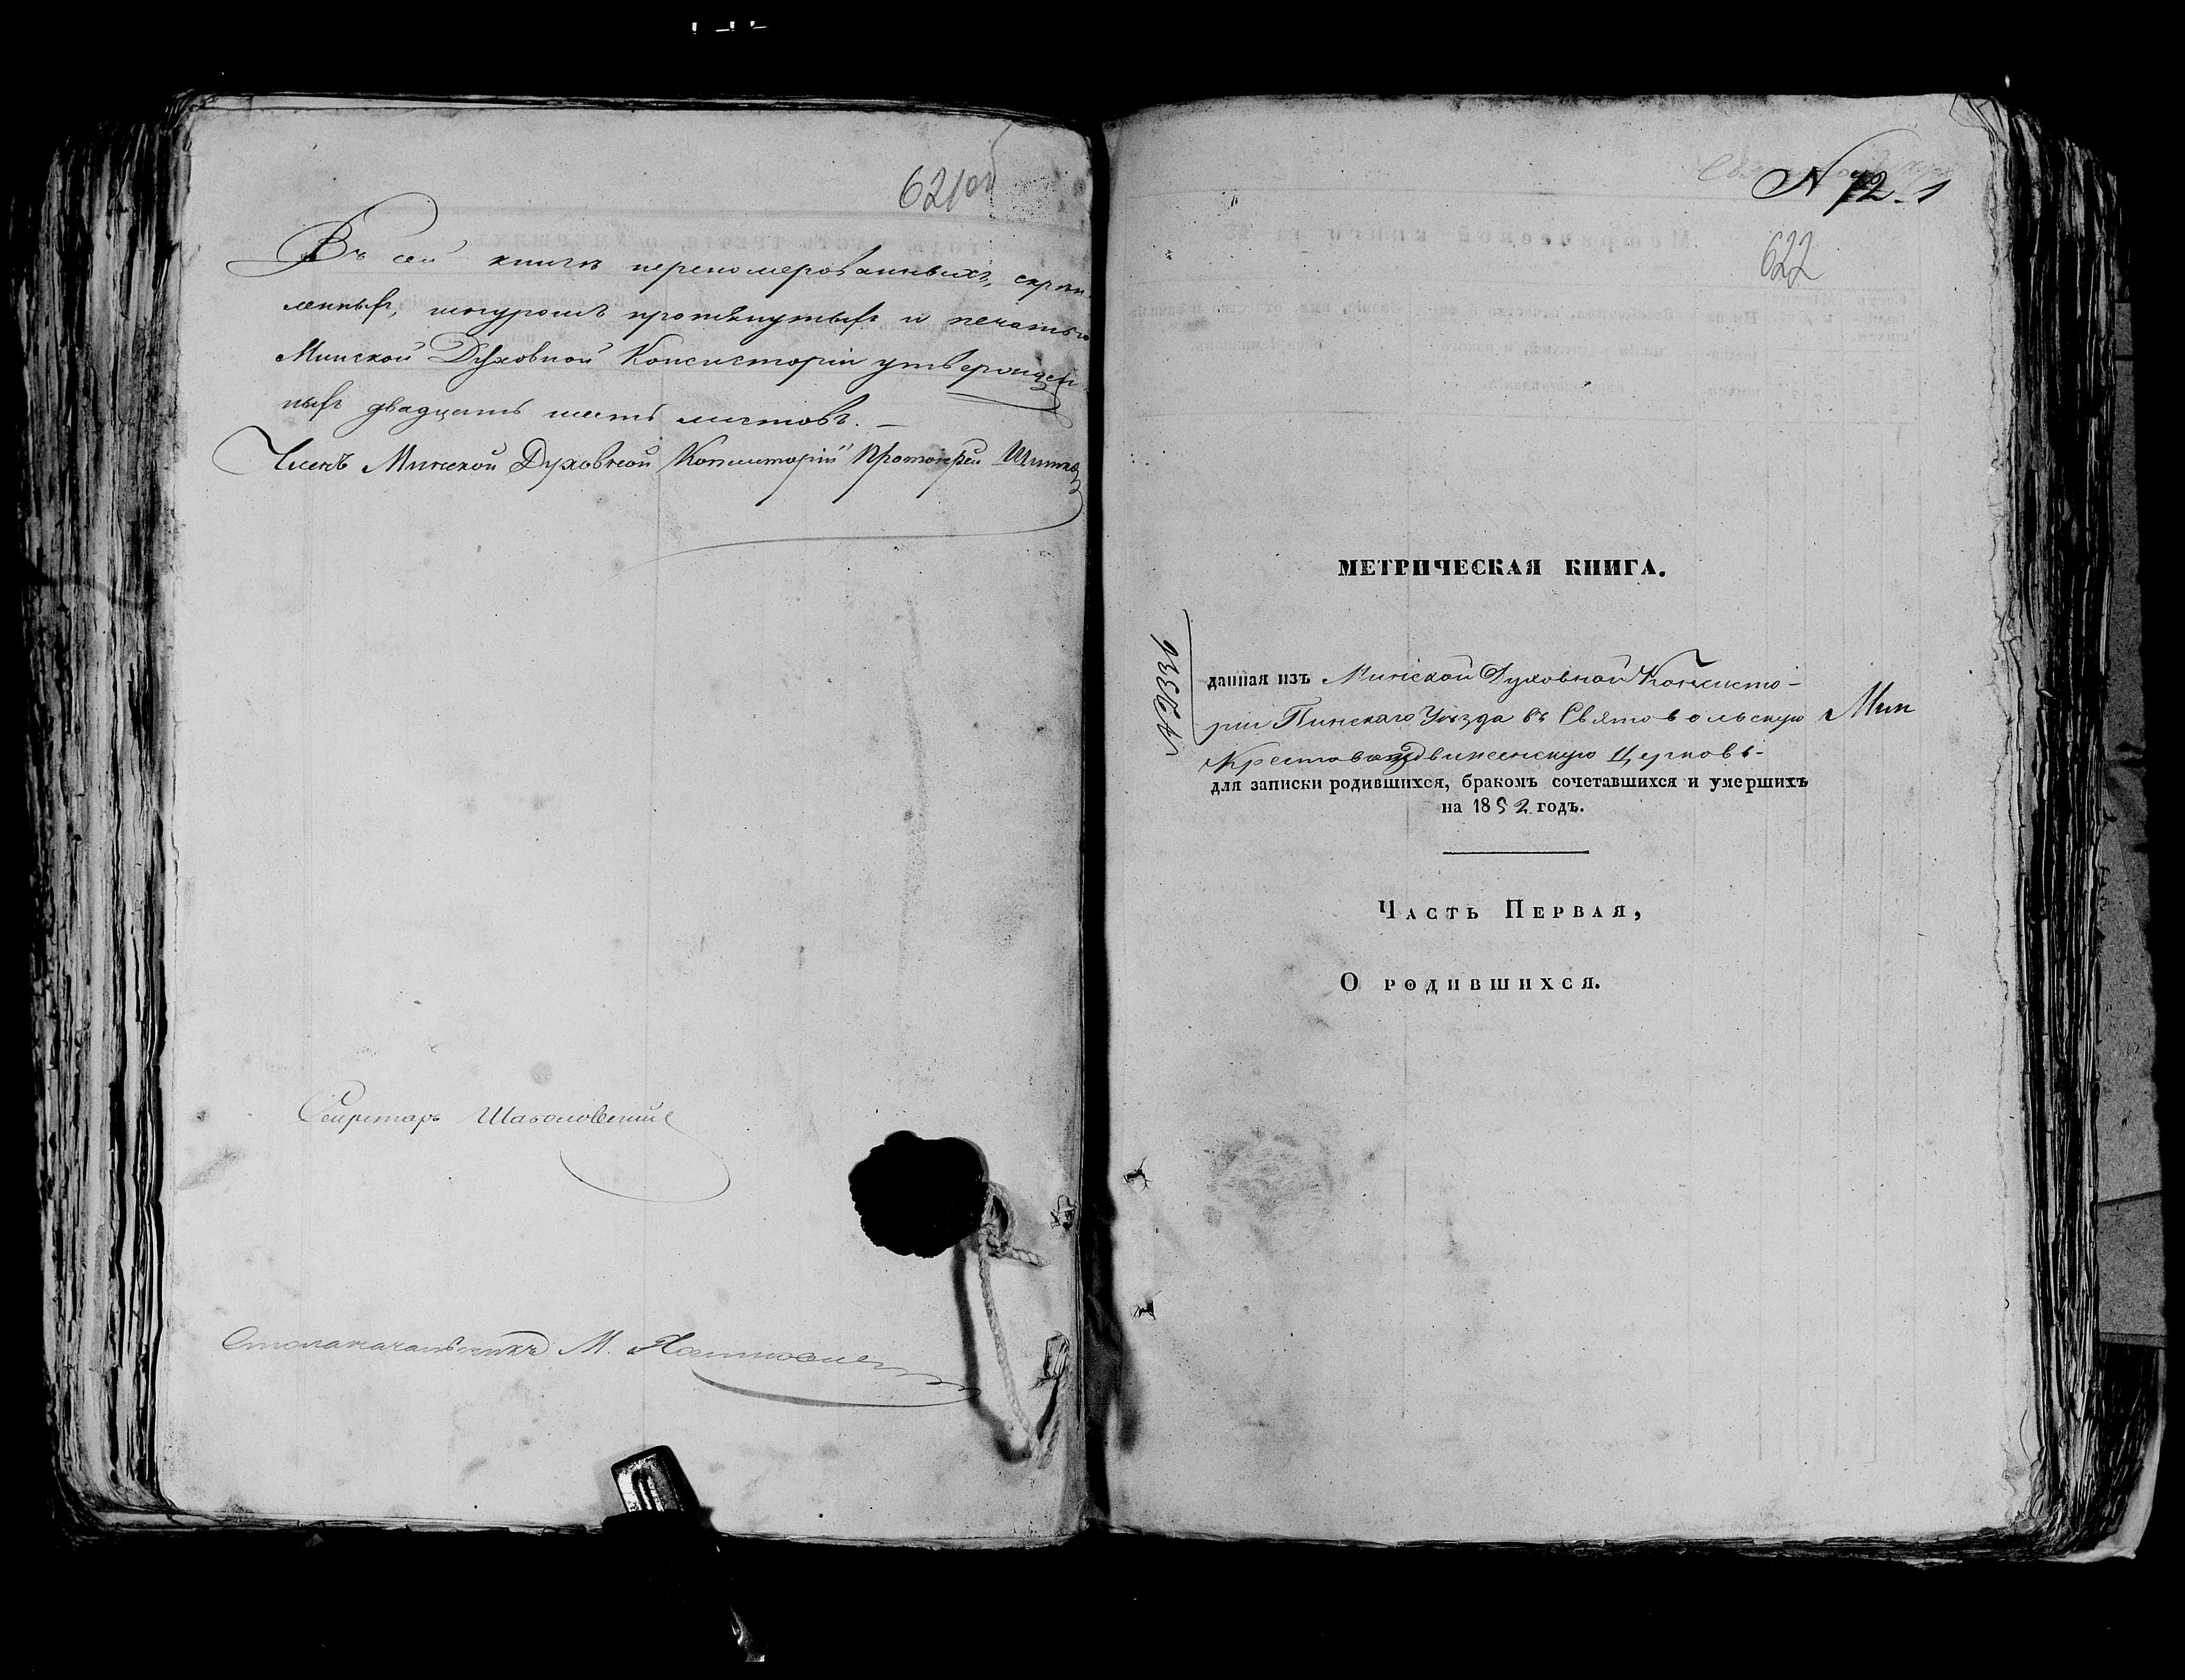 621об
Въ сей книгѣ перепомерованныхъ, скрѣп-
ленныхъ, шнуромъ протянутыхъ и печатью
Минской Духовной Консисторіи утвержден-
ныхъ двадцать шесть листовъ. –
Членъ Минской Духовной Консисторіи Протоіерей
Секретарь
Столоначальникъ М.
N 72. 1
622
МЕТРИЧЕСКАЯ КНИГА.
данная изъ Минской Духовной Консисто-
ріи Пинскаго Уѣзда въ Святовольскую
Крестовоздвиженскую Церковь-
для записки родившихся, бракомъ сочетавшихся и умершихъ
на 1852 годъ.
Мин
№9336
Часть Первая,
О родившихся.